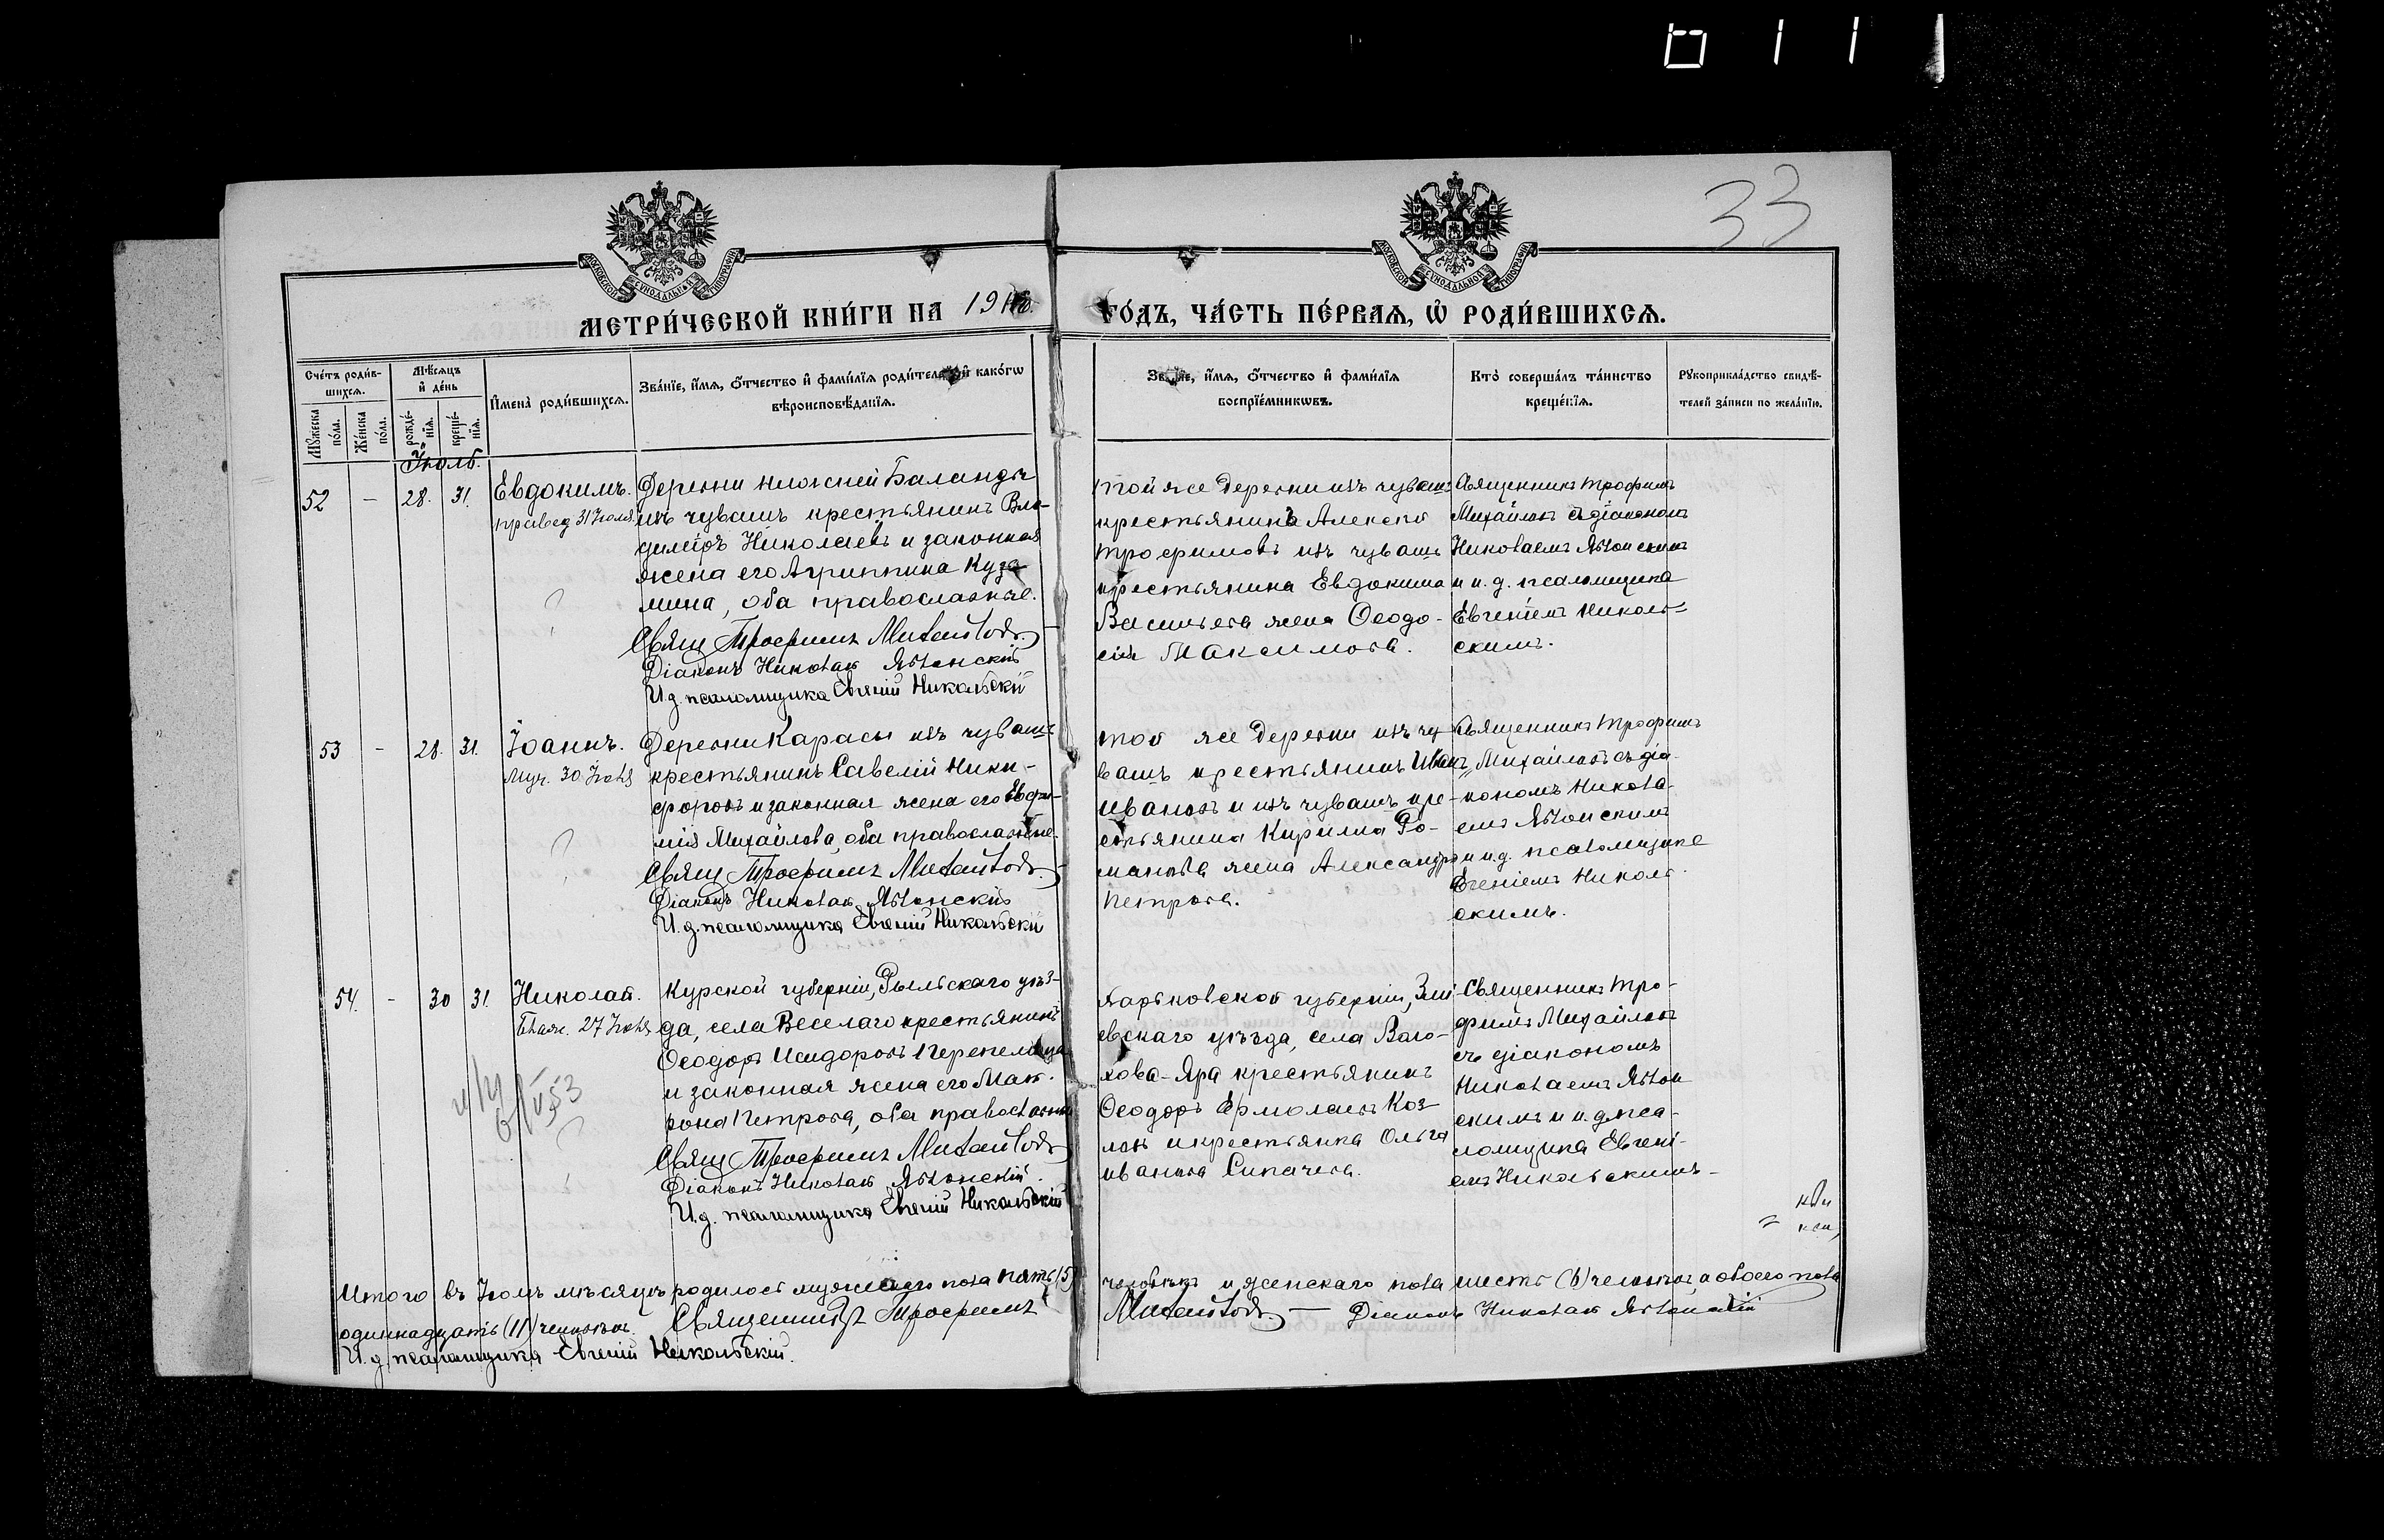 33
МЕТРИ́ЧЕСКОЙ КНИ́ГИ НА 191
ГО́ДЪ, ЧА́СТЬ ПЕ́РВАѦ, Ѡ РОДИ́ВШИХСѦ.
Сче́тъ роди́в-
шихсѧ.
Мꙋ́жеска по́ла.
Же́нска по́ла.
Мѣ́сѧцъ
и҆ де́нь
рожде́-нїѧ.
креще́-нїѧ.
И҆мена̀ роди́вшихсѧ.
Зва́нїе, и҆́мѧ, ѻ҆́тчество и҆ фами́лїѧ роди́телей и҆ како́гѡ
вѣроисповѣ́данїѧ.
Зва́нїе, и҆́мѧ, ѻ҆́тчество и҆ фами́лїѧ
воспрїе́мникѡвъ.
Кто̀ соверша́лъ та́инство
креще́нїѧ.
Рꙋкоприкла́дство свидѣ́-
телей за́писи по жела́нїю.
Іюль.
52 - 28. 31.
Евдокимъ.
правед 31 Іюля.
Деревни нижней Баланды
изъ чувашъ крестьянинъ Вла-
димiръ Николаевъ и законная
жена его Агриппина Кузь
мина, оба православные.
Свящ Трофимъ Михайловъ.
Діаконъ Николай Яблонскій
И.д. псаломщика Евгеній Никольскій
той же деревни изъ чувашъ
крестьянинъ Алексѣй
Трофимовъ изъ чувашъ
крестьянина Евдокима
Васильева жена Ѳеодо-
сія Максимова.
Священникъ Трофимъ
Михайловъ съ діакономъ
Николаемъ Яблонскимъ
и и.д. псаломщика
Евгеніемъ Николь-
скимъ.
53 - 28. 31.
Іоаннъ.
Муч. 30 Іюля
Деревни Карасы изъ чувашъ
крестьянинъ Савелій Ники-
форовъ и законная жена его Евфи-
мія Михайлова, оба православные.
Свящ Трофимъ Михайловъ.
Діаконъ Николай Яблонскій
И.д. псаломщика Евгеній Никольскій
той же деревни изъ чу-
вашъ крестьянинъ Иванъ
Ивановъ и изъ чувашъ кре-
стьянина Кирилла Ро-
манова жена Александра
Петрова.
Священникъ Трофимъ
Михайловъ съ діа
кономъ Никола-
емъ Яблонскимъ
и и.д. псаломщика
Евгеніемъ Николь-
скимъ.
54. - 30 31.
Николай.
Блаж. 27 Іюля
Курской губерніи, Рыльскаго уѣз-
да, села Веселаго крестьянинъ
Ѳеодоръ Исидоровъ Перепелица
и законная жена его Мат-
рона Петрова, оба православные
Свящ Трофимъ Михайловъ
Діаконъ Николай Яблонскій.
И.д. псаломщика Евгеній Никольскій
Харьковской губерніи, Змі-
евскаго уѣзда, села Воло-
хова-Яра крестьянинъ
Ѳеодоръ Ермолаевъ Коз-
ловъ и крестьянка Ольга
Иванова Сипачева.
Священникъ Тро-
фимъ Михайловъ
съ діакономъ
Николаемъ Яблон
скимъ и и.д. пса-
ломщика Евгені-
емъ Никольскимъ
Итого въ Іюлѣ мѣсяцѣ родилось мужескаго пола пять (5)
человѣкъ и женскаго пола шесть (6) человѣкъ, а обоего пола
одиннадцать (11) человѣкъ. Священникъ Трофимъ
Михайловъ. — Діаконъ Николай Яблонскій
И.д. псаломщика Евгеній Никольскій.